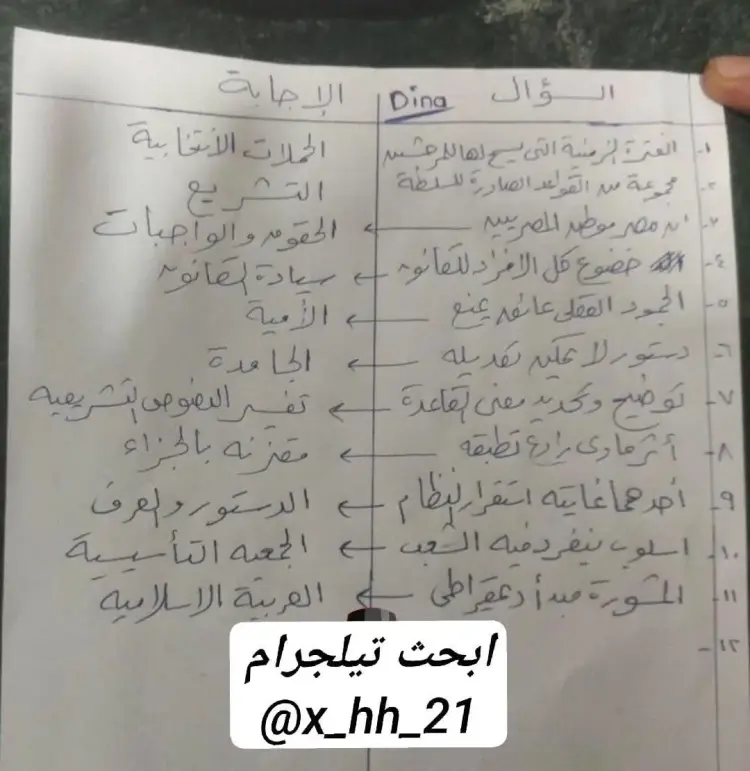 السؤال Dina الإجابة
١- الفترة الزمنية التي يسمح لها للمرشحين الحملات الانتخابية
٢- مجموعة من القواعد الصادرة للسلطة التشريع
٣- ان مصر موطن المصريين ← الحقوق والواجبات
٤- خضوع كل الافراد للقانون ← سيادة القانون
٥- الجمود العقلى عائق يمنع ← الأمية
٦- دستور لا يمكن تعديله ← الجامدة
٧- توضيح وتحديد معنى القاعدة ← تفسر النصوص التشريعيه
٨- أثر مادى رادع تطبقه ← مقترنه بالجزاء
٩- أحدهما غايته استقرار النظام ← الدستور والعرف
١٠- اسلوب ينفرد فيه الشعب ← الجمعيه التأسيسية
١١- المشورة مبدأ ديمقراطى ← العربية الاسلاميه
١٢-
ابحث تيلجرام
@x_hh_21